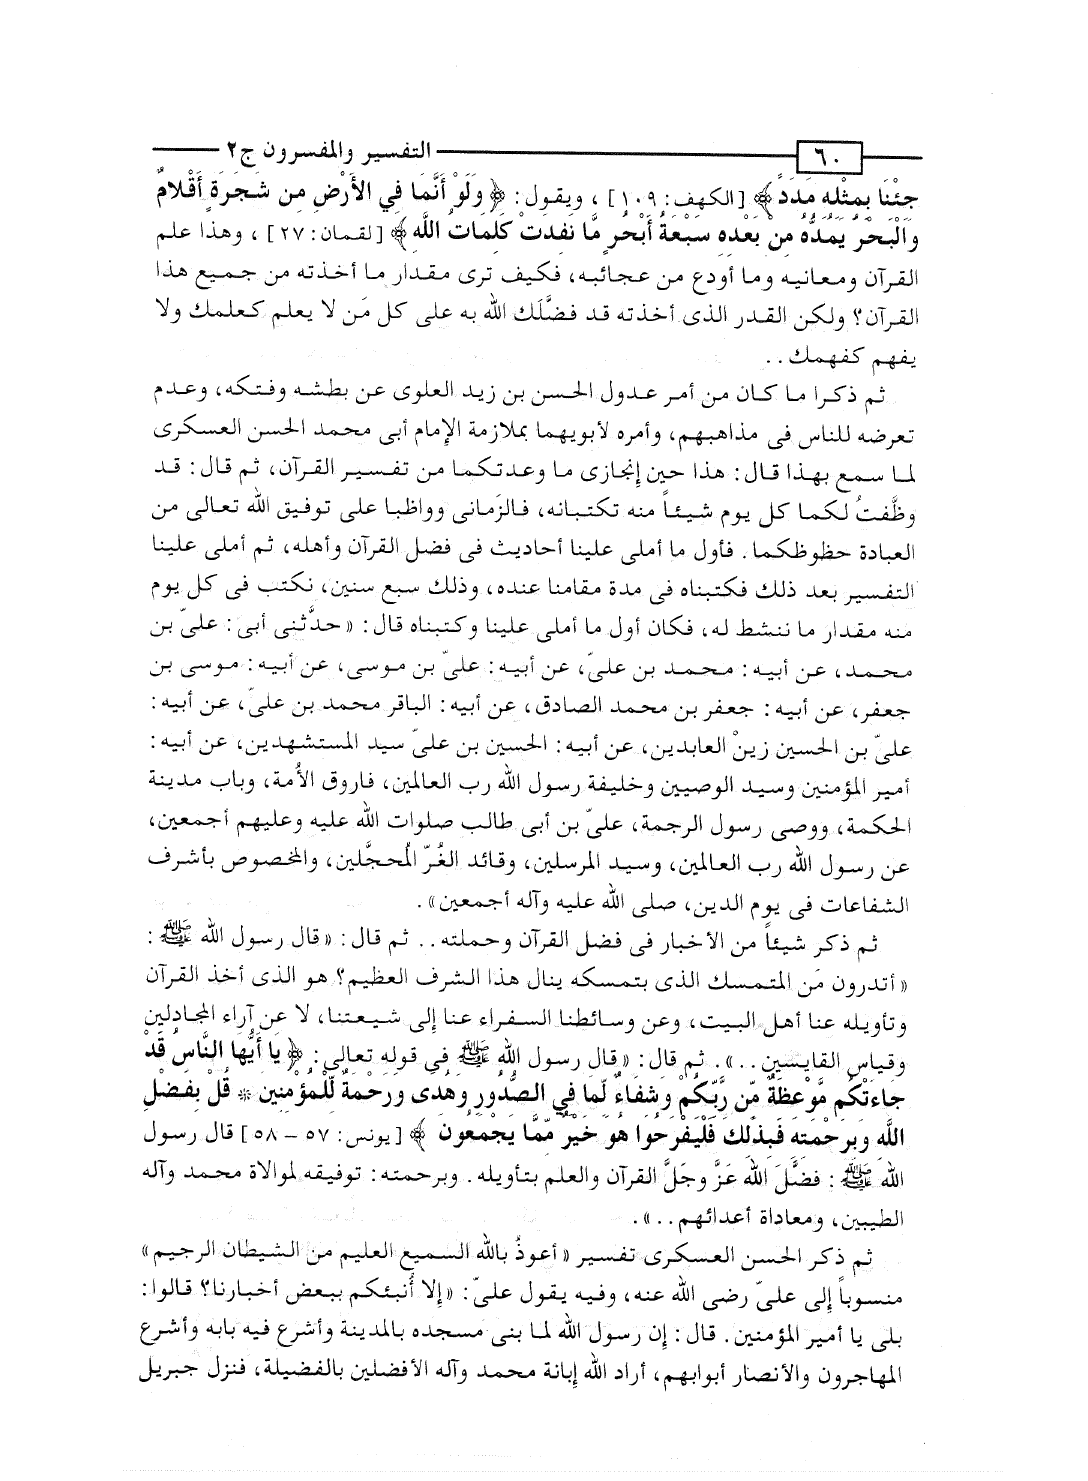 ٦٠ التفسير والمفسرون ج٢
جِئْنَا بِمِثْلِهِ مَدَدًا﴾ [الكهف: ١٠٩] ، ويقول: ﴿وَلَوْ أَنَّمَا فِي الأَرْضِ مِن شَجَرَةٍ أَقْلامٌ
وَالْبَحْرُ يَمُدُّهُ مِنْ بَعْدِهِ سَبْعَةُ أَبْحُرٍ مَّا نَفِدَتْ كَلِمَاتُ اللَّهِ﴾ [لقمان: ٢٧] ، وهذا علم
القرآن ومعانيه وما أودع من عجائبه، فكيف ترى مقدار ما أخذته من جميع هذا
القرآن؟ ولكن القدر الذى أخذته قد فضَّلَك الله به على كل مَن لا يعلم كعلمك ولا
يفهم كفهمك..
ثم ذكرا ما كان من أمر عدول الحسن بن زيد العلوى عن بطشه وفتكه، وعدم
تعرضه للناس فى مذاهبهم، وأمره لأبويهما بملازمة الإمام أبى محمد الحسن العسكرى
لما سمع بهذا قال: هذا حين إنجازى ما وعدتكما من تفسير القرآن، ثم قال: قد
وظَّفتُ لكما كل يوم شيئاً منه تكتبانه، فالزمانى وواظبا على توفيق الله تعالى من
العبادة حظوظكما. فأول ما أملى علينا أحاديث فى فضل القرآن وأهله، ثم أملى علينا
التفسير بعد ذلك فكتبناه فى مدة مقامنا عنده، وذلك سبع سنين، نكتب فى كل يوم
منه مقدار ما ننشط له، فكان أول ما أملى علينا وكتبناه قال: «حدَّثنى أبى: علىّ بن
محمد، عن أبيه: محمد بن علىّ، عن أبيه: علىّ بن موسى، عن أبيه: موسى بن
جعفر، عن أبيه: جعفر بن محمد الصادق، عن أبيه: الباقر محمد بن علىّ، عن أبيه:
علىّ بن الحسين زينْ العابدين، عن أبيه: الحسين بن علىّ سيد المستشهدين، عن أبيه:
أمير المؤمنين وسيد الوصيين وخليفة رسول الله رب العالمين، فاروق الأُمة، وباب مدينة
الحكمة، ووصى رسول الرحمة، علىّ بن أبى طالب صلوات الله عليه وعليهم أجمعين،
عن رسول الله رب العالمين، وسيد المرسلين، وقائد الغُرّ المُحجَّلين، والمخصوص بأشرف
الشفاعات فى يوم الدين، صلى الله عليه وآله أجمعين».
ثم ذكر شيئاً من الأخبار فى فضل القرآن وحملته.. ثم قال: «قال رسول الله ﷺ:
«أتدرون مَن المتمسك الذى بتمسكه ينال هذا الشرف العظيم؟ هو الذى أخذ القرآن
وتأويله عنا أهل البيت، وعن وسائطنا السفراء عنا إلى شيعتنا، لا عن آراء المجادلين
وقياس القايسين..». ثم قال: «قال رسول الله ﷺ فى قوله تعالى: ﴿يَا أَيُّهَا النَّاسُ قَدْ
جَاءَتْكُم مَّوْعِظَةٌ مِّن رَّبِّكُمْ وَشِفَاءٌ لِّمَا فِي الصُّدُورِ وَهُدًى وَرَحْمَةٌ لِّلْمُؤْمِنِينَ * قُلْ بِفَضْلِ
اللَّهِ وَبِرَحْمَتِهِ فَبِذَلِكَ فَلْيَفْرَحُوا هُوَ خَيْرٌ مِّمَّا يَجْمَعُونَ﴾ [يونس: ٥٧ - ٥٨] قال رسول
الله ﷺ: فضَّلَ الله عَزَّ وجَلَّ القرآن والعلم بتأويله. وبرحمته: توفيقه لموالاة محمد وآله
الطيبين، ومعاداة أعدائهم..».
ثم ذكر الحسن العسكرى تفسير «أعوذُ بالله السميع العليم من الشيطان الرجيم»
منسوباً إلى علىّ رضى الله عنه، وفيه يقول علىّ: «إلا أُنبئكم ببعض أخبارنا؟ قالوا:
بلى يا أمير المؤمنين. قال: إن رسول الله لما بنى مسجده بالمدينة وأشرع فيه بابه وأشرع
المهاجرون والأنصار أبوابهم، أراد الله إبانة محمد وآله الأفضلين بالفضيلة، فنزل جبريل